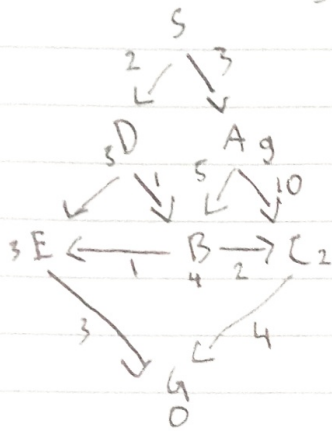 S
2 3
D A 9
5 1 5 10
3 E B C 2
1 4 2
3 4
G
0